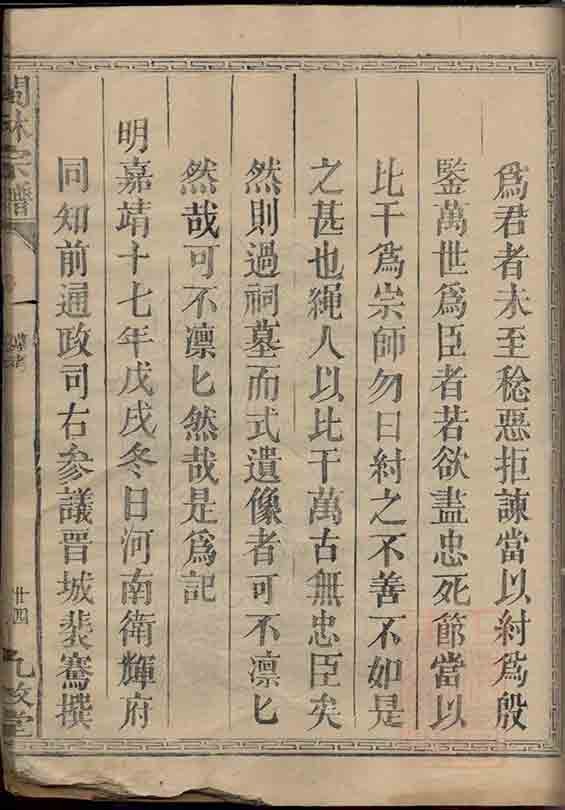 爲君者未至稔惡拒諫當以紂爲殷
鑒萬世爲臣者若欲盡忠死節當以
比干爲宗師勿曰紂之不善不如是
之甚也繩人以比干萬古無忠臣矣
然則過祠墓而式遺像者可不凛匕
然哉可不凛匕然哉是爲記
明嘉靖十七年戊戌冬日河南衛輝府
同知前通政司右參議晋城裴騫撰
林宗譜
卅四